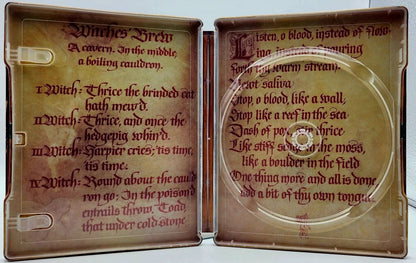 Witches Brew
A cavern. In the middle,
a boiling cauldron.
I Witch: Thrice the brinded cat
hath mew'd.
II Witch: Thrice, and once the
hedgepig whin'd.
III Witch: Harpier cries; 'tis time,
'tis time.
IV Witch: Round about the caul d
ron go; In the poison'd
entrails throw. Toad,
that under cold stone
Listen, o blood, instead of flow
ing, instead of pouring
forth thy warm stream.
Newt saliva
Stop, o blood, like a wall,
Stop like a reef in the sea
Dash of thrice
Like stiff in the moss,
like a boulder in the field
One thing more and all is done
add a bit of thy own tongue.